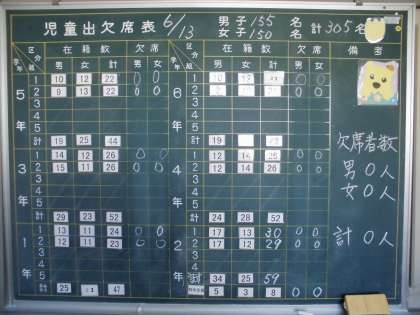 児童出欠席表 6/13 男子155名 女子150名 計305名
学年 区分 組 在籍数 欠席 学年 区分 組 在籍数 欠席 備考
男 女 計 男 女 男 女 計 男 女
5年 1 10 12 22 0 0 6年 1 10 12 0 0
2 9 13 22 0 0 2 9 0 0
3 3
4 4
5 5
計 19 25 44 計 19
3年 1 14 12 26 0 0 4年 1 12 14 26 0 0
2 15 11 26 0 0 2 12 14 26 0 0
3 3
4 4
5 5
計 29 23 52 計 24 28 52
1年 1 13 11 24 0 0 2年 1 17 13 30 0 0
2 12 11 23 0 0 2 17 12 29 0 0
3 3
4 4
5 計 34 25 59
計 25 47 5 3 8 0 0
欠席者数
男0人
女0人
計0人